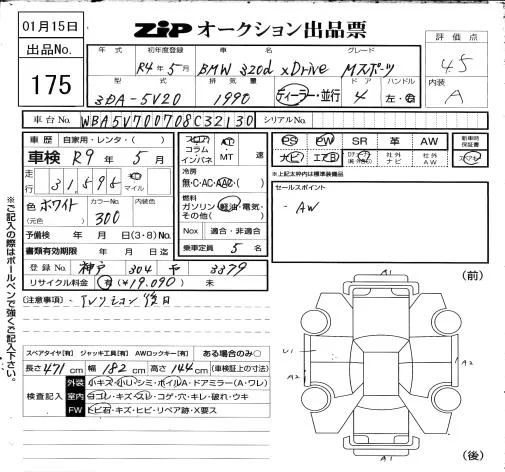 01月15日
出品No.
175
ZIP オークション出品票
評価点
4.5
内装
A
年式 初年度登録 車名 グレード
R4年5月 BMW 320d xDrive Mスポーツ
型式 排気量 ドア ハンドル
3DA-5V20 1990 ディーラー・並行 4 左・右
車台No. WBA5V700708C32130 シリアルNo.
車歴 自家用・レンタ・( )
車検 R9年5月
走行 31,598 km マイル
色 ホワイト カラーNo. 300 内装色
(元色)
予備検 年 月 日(3・8)No.
書類有効期限 年 月 日迄
登録No. 神戸 304 や 3379
リサイクル料金 有(¥19,090) 未
フロア AT
コラム MT 速
インパネ
冷房
無・C・AC・AAC・( )
燃料
ガソリン・軽油・電気・
その他( )
Nox 適合・非適合
乗車定員 5 名
PS PW SR 革 AW
ナビ エアB 社外ナビ 社外AW
新車時保証書
スペアキー
※上記太枠内は標準装備品
セールスポイント
・AW
(注意事項)・
後日
スペアタイヤ[有] ジャッキ工具[有] AWロックキー[有] ある場合のみ○
長さ471cm 幅182cm 高さ144cm (車検証上の寸法)
検査記入
外装 小キズ・小U・シミ・ホイルA・ドアミラー(A・ワレ)
室内 ヨゴレ・キズ・スレ・コゲ・穴・キレ・破れ・ウキ
FW トビ石・キズ・ヒビ・リペア跡・X要ス
※ご記入の際はボールペンで強くご記入下さい。
(前)
A1
U1
A2
A2
A1
(後)